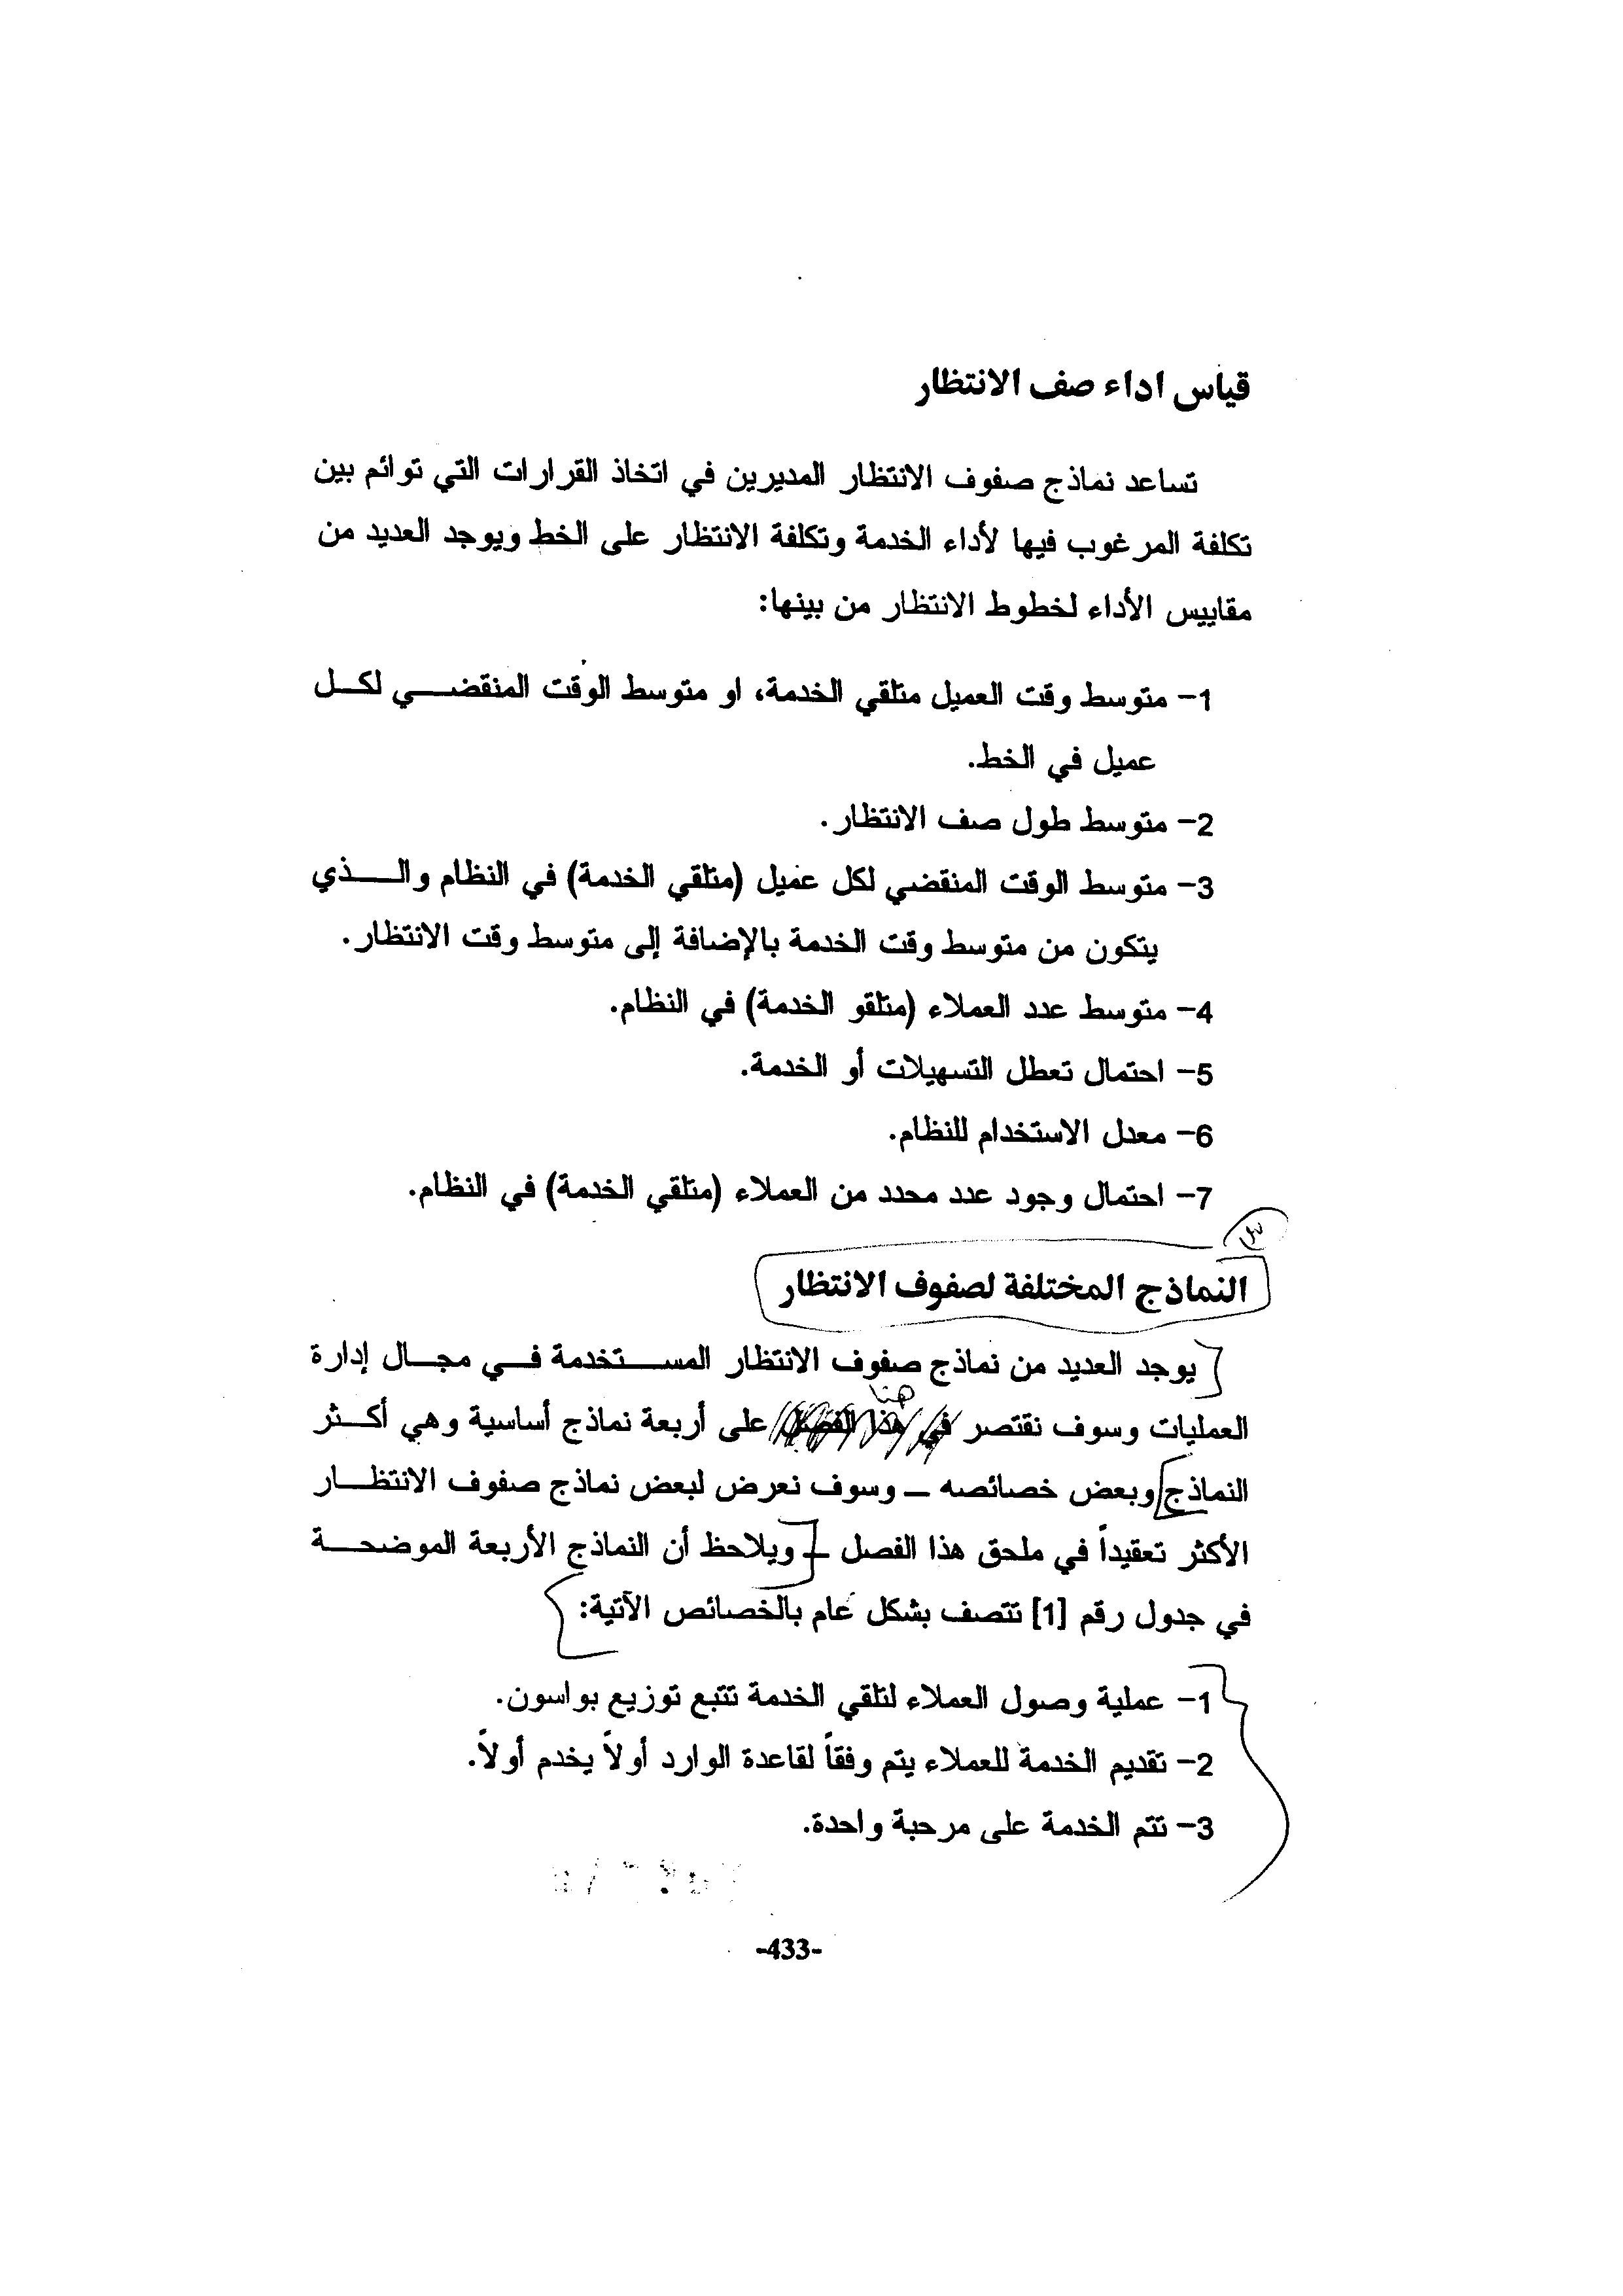 قياس اداء صف الانتظار
تساعد نماذج صفوف الانتظار المديرين في اتخاذ القرارات التي توائم بين
تكلفة المرغوب فيها لأداء الخدمة وتكلفة الانتظار على الخط ويوجد العديد من
مقاييس الأداء لخطوط الانتظار من بينها:
1- متوسط وقت العميل متلقي الخدمة، او متوسط الوقت المنقضي لكل
عميل في الخط.
2- متوسط طول صف الانتظار.
3- متوسط الوقت المنقضي لكل عميل (متلقي الخدمة) في النظام والذي
يتكون من متوسط وقت الخدمة بالإضافة إلى متوسط وقت الانتظار.
4- متوسط عدد العملاء (متلقو الخدمة) في النظام.
5- احتمال تعطل التسهيلات أو الخدمة.
6- معدل الاستخدام للنظام.
7- احتمال وجود عدد محدد من العملاء (متلقي الخدمة) في النظام.
النماذج المختلفة لصفوف الانتظار
يوجد العديد من نماذج صفوف الانتظار المستخدمة في مجال إدارة
هنا
العمليات وسوف نقتصر في هذا الفصل على أربعة نماذج أساسية وهي أكثر
النماذج وبعض خصائصه – وسوف نعرض لبعض نماذج صفوف الانتظار
الأكثر تعقيداً في ملحق هذا الفصل – ويلاحظ أن النماذج الأربعة الموضحة
في جدول رقم [1] تتصف بشكل عام بالخصائص الآتية:
1- عملية وصول العملاء لتلقي الخدمة تتبع توزيع بواسون.
2- تقديم الخدمة للعملاء يتم وفقاً لقاعدة الوارد أولاً يخدم أولاً.
3- تتم الخدمة على مرحبة واحدة.
-433-